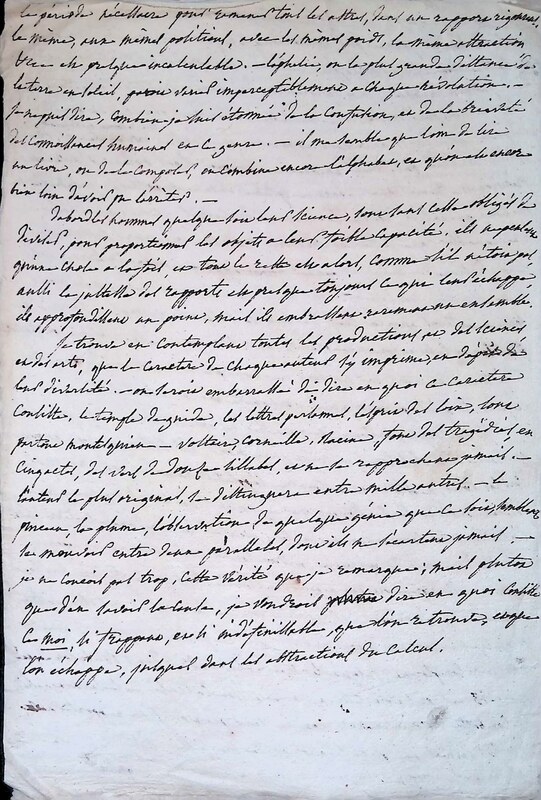 la période nécessaire pour ramener tous les astres, dans un rapport rigoureux,
le même, aux mêmes positions, avec les mêmes poids, la même attraction
est presque incalculable. — l'aphélie, ou la plus grande distance de
la terre au soleil, varie imperceptiblement a chaque révolution. —
je ne puis dire, combien je suis étonnée de la confusion, et de la brièveté
des connoissances humaines en ce genre. — il me semble que loin de lire
un livre, ou de le composer, on combine encore l'alphabet, et qu'on est encore
bien loin d'avoir pu l'écrire. —
Dabord les hommes quelque soit leur science, sont sans cesse obligés de
diviser, pour proportioner les objets a leur foible capacité. ils ne peuvent
qu'une chose a la fois, et tout le reste est alors, comme s'il n'etoit pas.
aussi la justesse des rapports est presque toujours ce qui leur échappe,
ils approfondissent un point, mais ils embrassent rarement un ensemble.
Je trouve en contemplant toutes les productions, et des sciences
et des arts, que le caractere de chaque auteur s'y imprime, en dépit de
leur diversité. — on seroit embarrassé de dire en quoi ce caractere
consiste, le temple de gnide, les lettres persannes, l'esprit des loix, sont
partout montesquieu — voltaire, corneille, racine, font des tragédies, en
cinq actes, des vers de douze sillabes, et ne se rapprochent jamais. —
l'auteur le plus original, se distinguera entre mille autres. — le
pinceau la plume, l'observation de quelque génie que ce soit, semblent
se mouvoir entre deux parallèles, dont ils ne s'écartent jamais. —
je ne conçois pas trop, cette vérité que je remarque; mais plutot
que d'en savoir la cause, je voudrois dire en quoi consiste
ce moi, si frappant, et si indéfinissable, que l'on retrouve, et que
l'on échappe, jusques dans les abstractions du calcul.